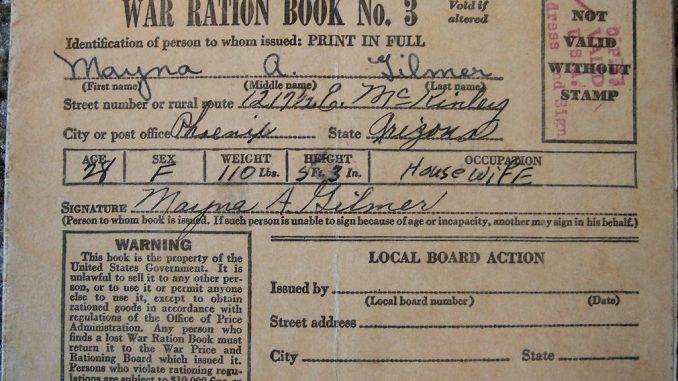 WAR RATION BOOK No. 3
Void if
altered
Identification of person to whom issued: PRINT IN FULL
Mayna A. Gilmer
(First name) (Middle name) (Last name)
Street number or rural route 1217½ E. McKinley
City or post office Phoenix State Arizona
AGE SEX WEIGHT HEIGHT OCCUPATION
28 F 110 Lbs. 5 Ft. 3 In. Housewife
SIGNATURE Mayna A. Gilmer
(Person to whom book is issued. If such person is unable to sign because of age or incapacity, another may sign in his behalf.)
NOT
VALID
WITHOUT
STAMP
WARNING
This book is the property of the
United States Government. It is
unlawful to sell it to any other per-
son, or to use it or permit anyone
else to use it, except to obtain
rationed goods in accordance with
regulations of the Office of Price
Administration. Any person who
finds a lost War Ration Book must
return it to the War Price and
Rationing Board which issued it.
Persons who violate rationing regu-
lations are subject to $10,000
LOCAL BOARD ACTION
Issued by
(Local board number) (Date)
Street address
City State